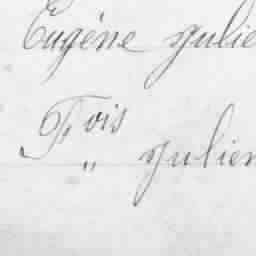 Eugène Julie
Fr ois
" Julien